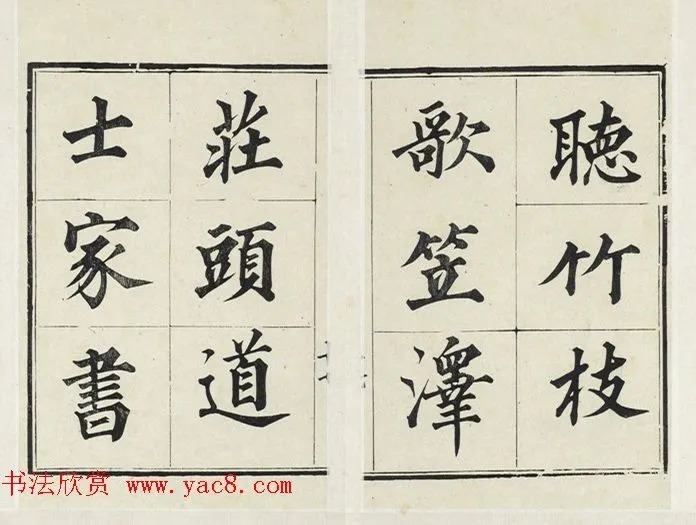 聽竹枝
歌笠澤
莊頭道
士家書
书法欣赏 www.yac8.com